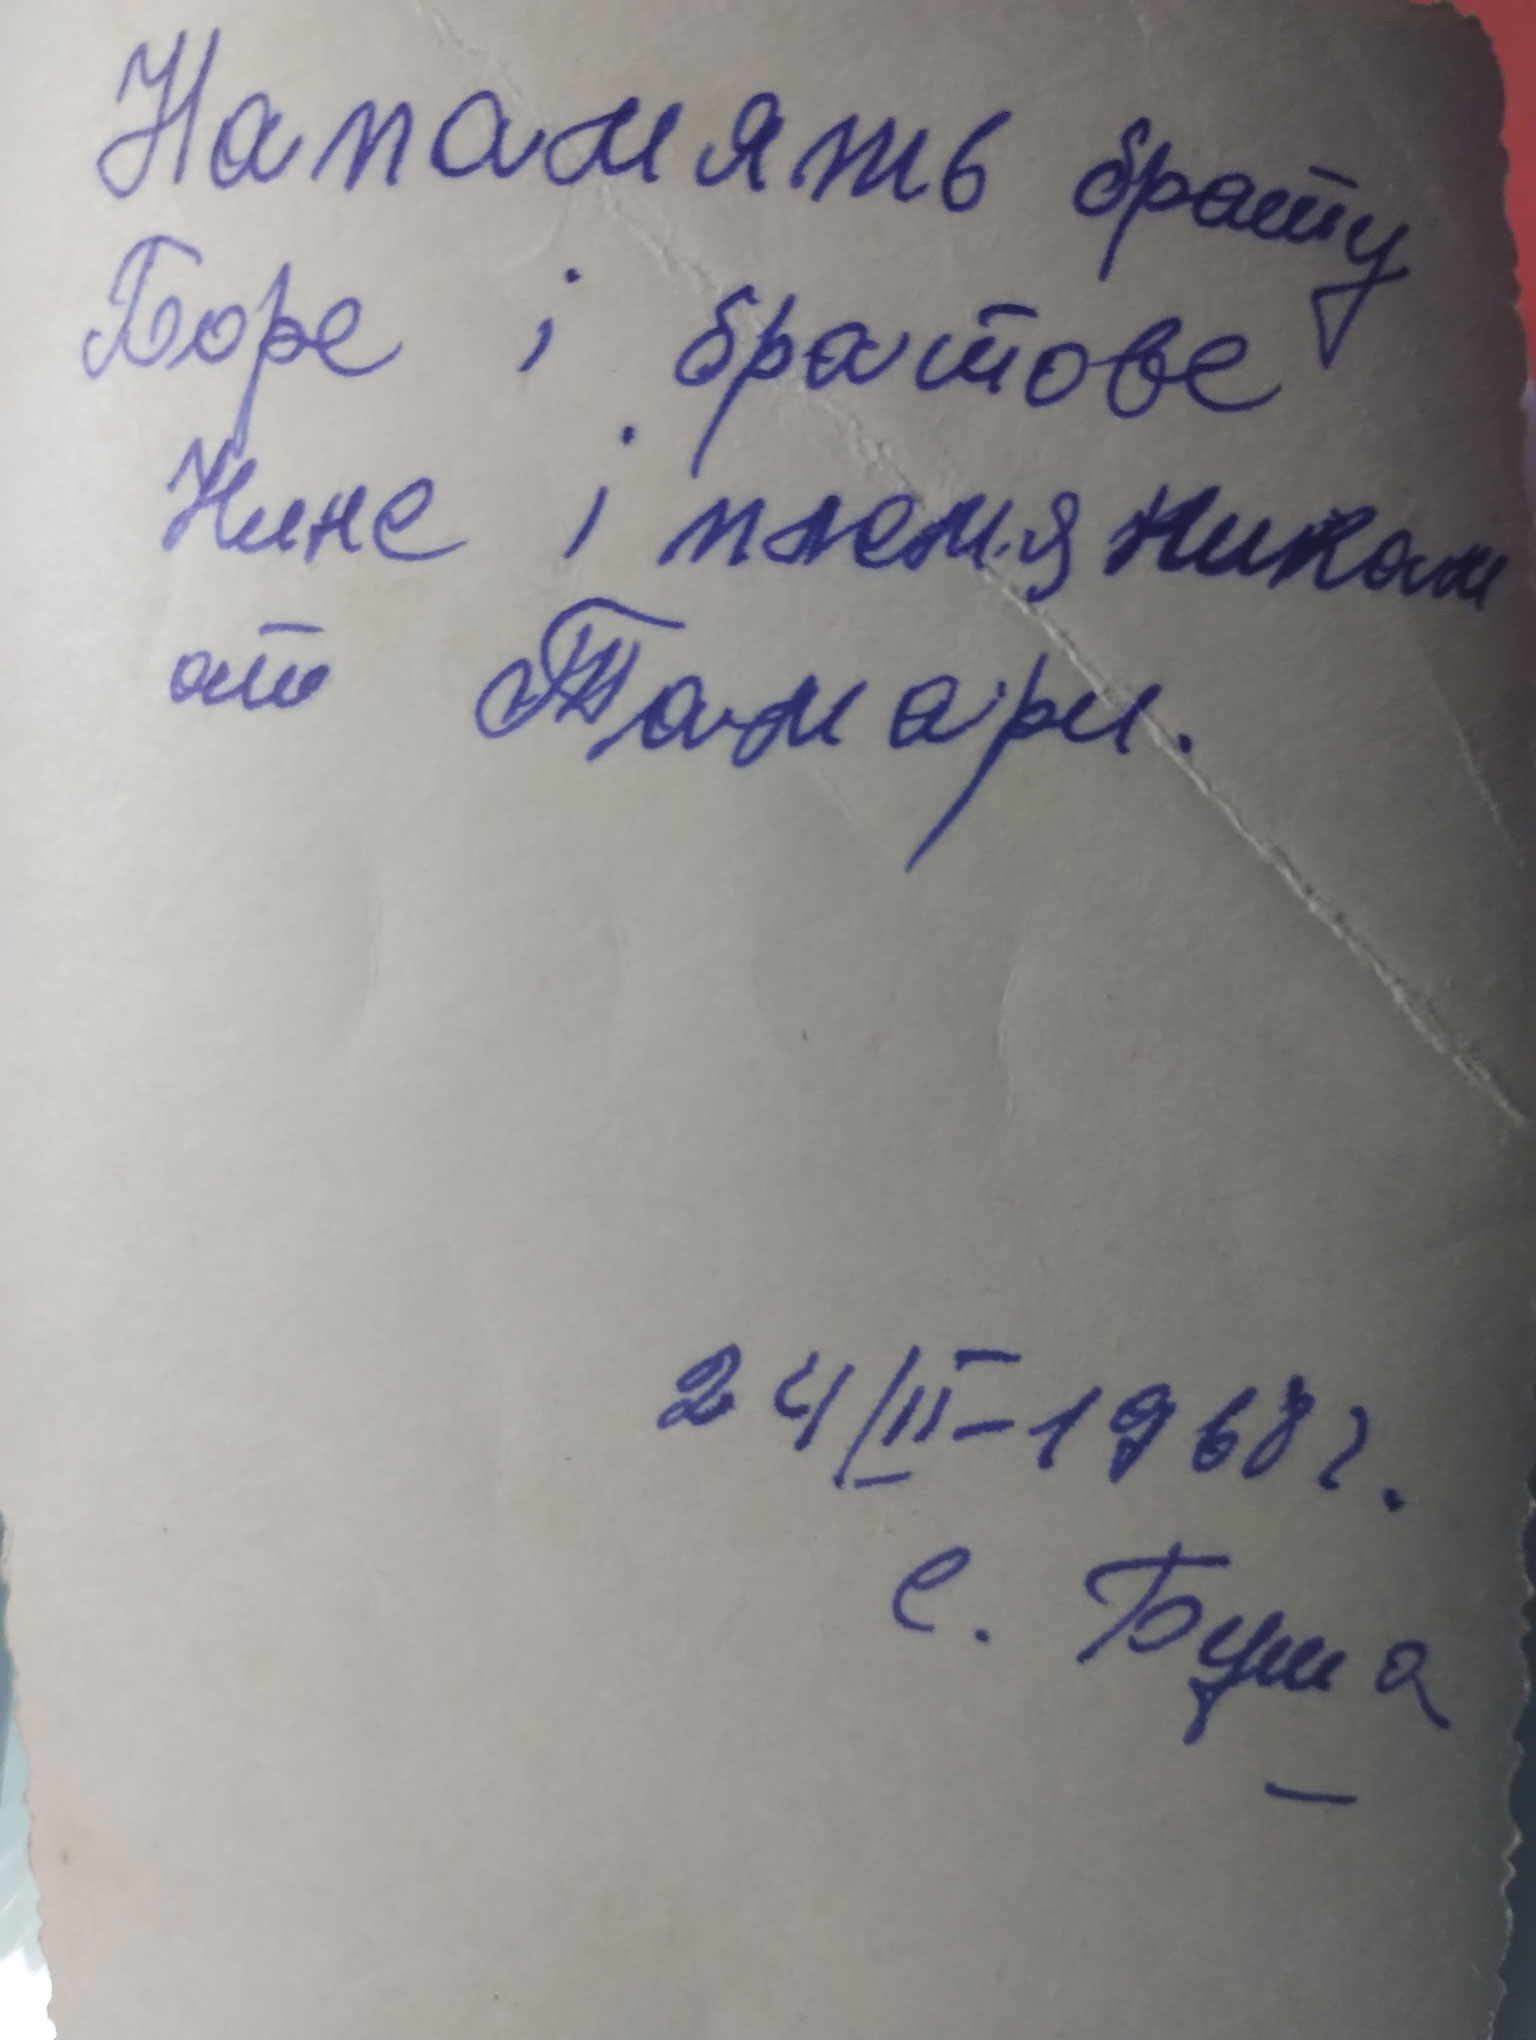 Напамять брату
Боре і братове
Нине і племяникам
от Тамари.
24/II-1968г.
с. Буша